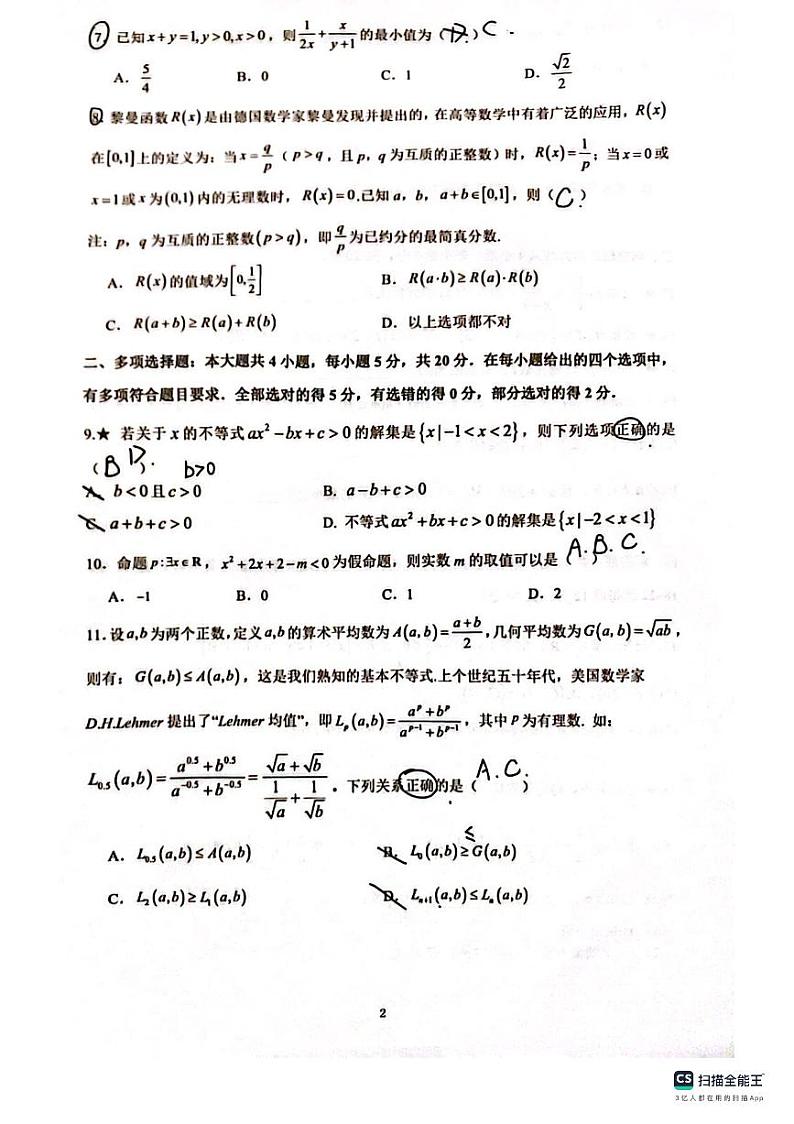 7 已知x+y=1,y>0,x>0，则1/(2x)+x/(y+1)的最小值为（D.）C.
A. 5/4 B. 0 C. 1 D. √2/2
8. 黎曼函数R(x)是由德国数学家黎曼发现并提出的，在高等数学中有着广泛的应用，R(x)
在[0,1]上的定义为：当x=q/p（p>q，且p，q为互质的正整数）时，R(x)=1/p；当x=0或
x=1或x为(0,1)内的无理数时，R(x)=0.已知a，b，a+b∈[0,1]，则（C）
注：p，q为互质的正整数(p>q)，即q/p为已约分的最简真分数.
A. R(x)的值域为[0,1/2] B. R(a·b)≥R(a)·R(b)
C. R(a+b)≥R(a)+R(b) D. 以上选项都不对
二、多项选择题：本大题共4小题，每小题5分，共20分．在每小题给出的四个选项中，
有多项符合题目要求．全部选对的得5分，有选错的得0分，部分选对的得2分．
9.★ 若关于x的不等式ax²-bx+c>0的解集是{x|-1<x<2}，则下列选项正确的是
（BD）. b>0
A. b<0且c>0 B. a-b+c>0
C. a+b+c>0 D. 不等式ax²+bx+c>0的解集是{x|-2<x<1}
10. 命题p:∃x∈R，x²+2x+2-m<0为假命题，则实数m的取值可以是（A.B.C.）
A. -1 B. 0 C. 1 D. 2
11.设a,b为两个正数,定义a,b的算术平均数为A(a,b)=(a+b)/2,几何平均数为G(a,b)=√(ab)，
则有：G(a,b)≤A(a,b)，这是我们熟知的基本不等式.上个世纪五十年代，美国数学家
D.H.Lehmer提出了“Lehmer均值”，即Lₚ(a,b)=(aᵖ+bᵖ)/(aᵖ⁻¹+bᵖ⁻¹)，其中P为有理数. 如：
L₀.₅(a,b)=(a^0.5+b^0.5)/(a^-0.5+b^-0.5)=(√a+√b)/(1/√a+1/√b)。下列关系正确的是（A.C.）
≤
A. L₀.₅(a,b)≤A(a,b) B. L₀(a,b)≥G(a,b)
C. L₂(a,b)≥L₁(a,b) D. Lₙ₊₁(a,b)≤Lₙ(a,b)
2
CS 扫描全能王™
3亿人都在用的扫描App